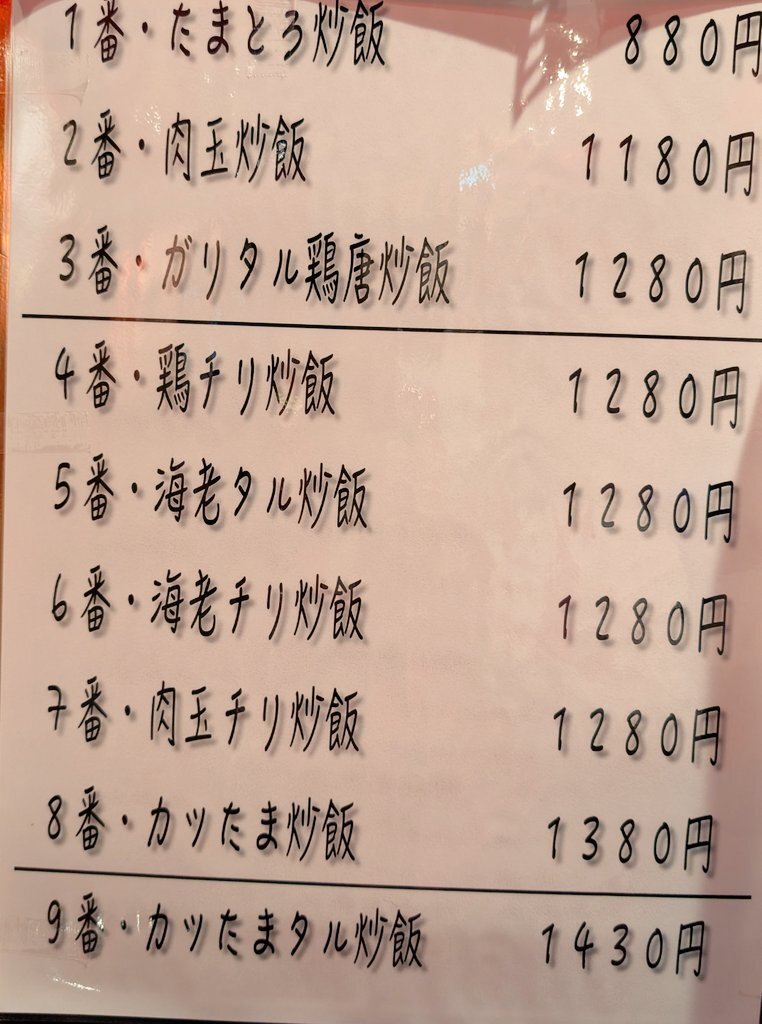 1番・たまとろ炒飯 880円
2番・肉玉炒飯 1180円
3番・ガリタル鶏唐炒飯 1280円
4番・鶏チリ炒飯 1280円
5番・海老タル炒飯 1280円
6番・海老チリ炒飯 1280円
7番・肉玉チリ炒飯 1280円
8番・カツたま炒飯 1380円
9番・カツたまタル炒飯 1430円